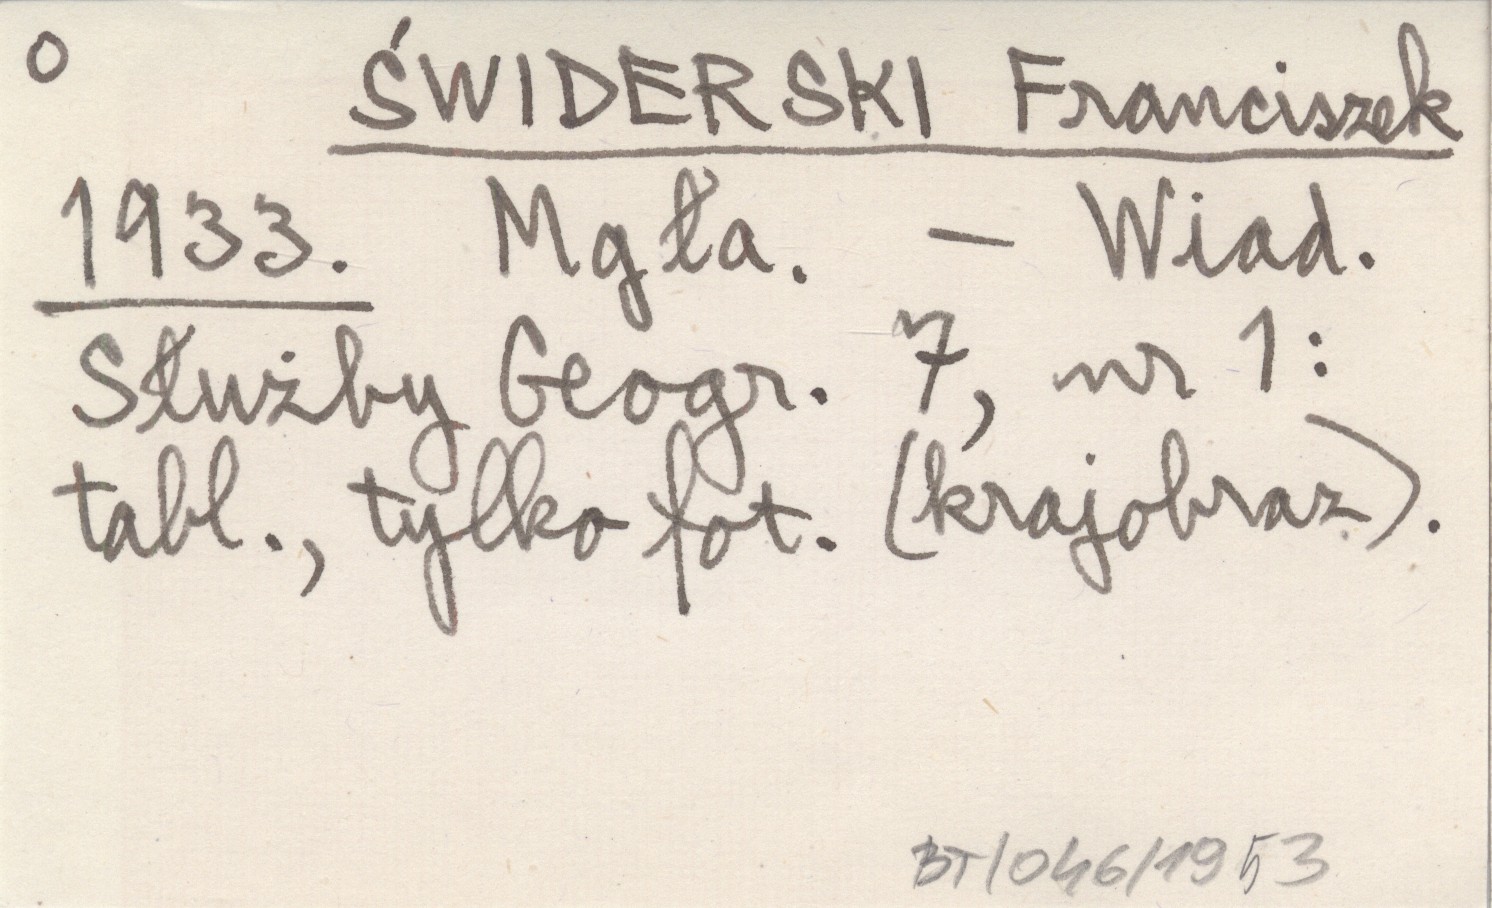 o ŚWIDERSKI Franciszek
1933. Mgła. — Wiad.
Służby Geogr. 7, nr 1:
tabl., tylko fot. (krajobraz).
BT/046/1953